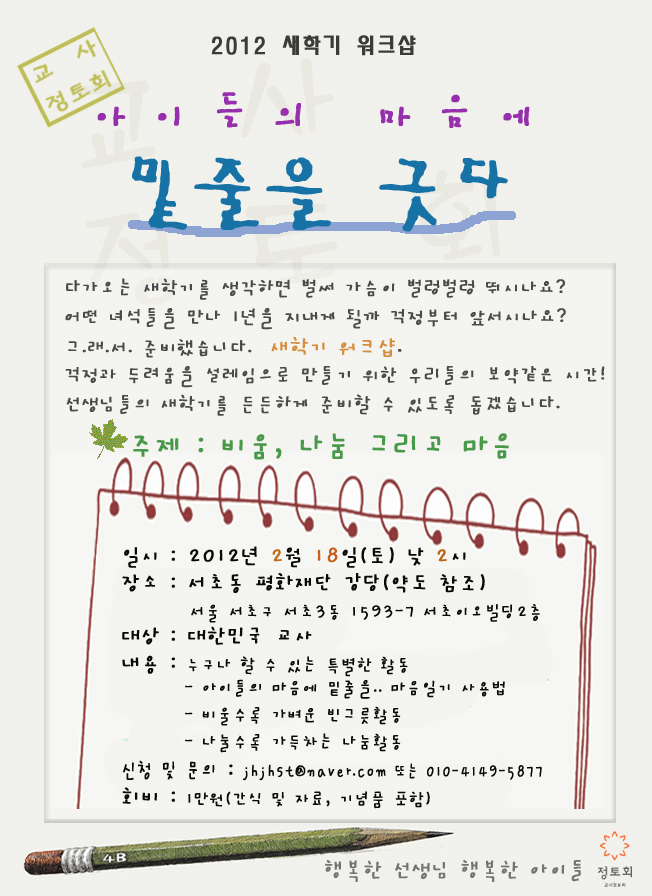 2012 새학기 워크샵
교 사
정토회
아이들의 마음에
밑줄을 긋다
교 사
정 토 회
다가오는 새학기를 생각하면 벌써 가슴이 벌렁벌렁 뛰시나요?
어떤 녀석들을 만나 1년을 지내게 될까 걱정부터 앞서시나요?
그.래.서. 준비했습니다. 새학기 워크샵.
걱정과 두려움을 설레임으로 만들기 위한 우리들의 보약같은 시간!
선생님들의 새학기를 든든하게 준비할 수 있도록 돕겠습니다.
주제 : 비움, 나눔 그리고 마음
일시 : 2012년 2월 18일(토) 낮 2시
장소 : 서초동 평화재단 강당(약도 참조)
서울 서초구 서초3동 1593-7 서초이오빌딩2층
대상 : 대한민국 교사
내용 : 누구나 할 수 있는 특별한 활동
- 아이들의 마음에 밑줄을.. 마음일기 사용법
- 비울수록 가벼운 빈그릇활동
- 나눌수록 가득차는 나눔활동
신청 및 문의 : jhjhst@naver.com 또는 010-4149-5877
회비 : 1만원(간식 및 자료, 기념품 포함)
4B
행복한 선생님 행복한 아이들
정토회
교사정토회